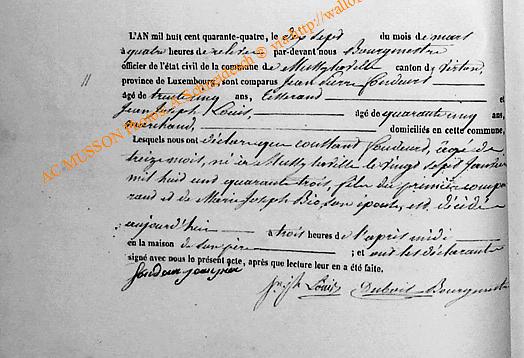 L'AN mil huit cent quarante-quatre, le dix sept du mois de mars
à quatre heures de relevée par-devant nous Bourgmestre
officier de l'état civil de la commune de canton de Virton,
province de Luxembourg, sont comparus Jean Pierre
âgé de trente cinq ans, tisserand et
Jean Joseph Louis, âgé de quarante cinq ans,
marchand, domiciliés en cette commune,
11
Lesquels nous ont déclaré que Constant agé de
treize mois, né à le vingt sept Janvier
mil huit cent quarante trois, fils du premier compa
rant et de Marie Joseph son épouse, est décédé
aujourd'hui à trois heures de l'après midi
en la maison de son père ; et ont les déclarants
signé avec nous le présent acte, après que lecture leur en a été faite.
Louis Dubois Bourgmestre
AC MUSSON Photos A. Schleich © via http://wallo